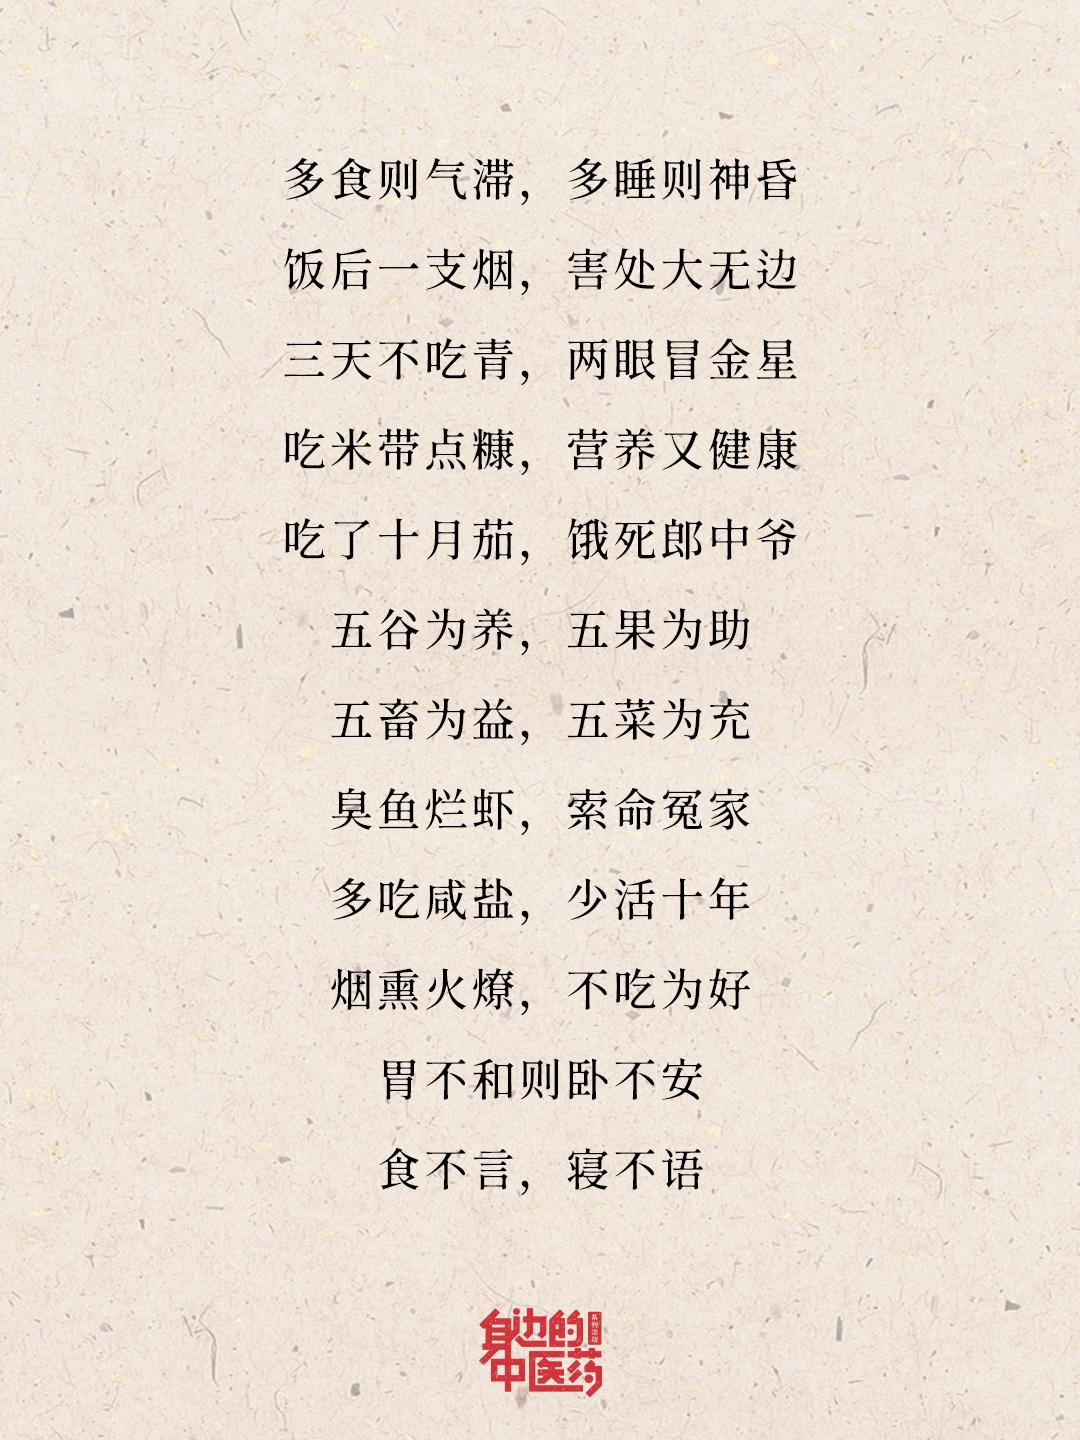 多食则气滞，多睡则神昏
饭后一支烟，害处大无边
三天不吃青，两眼冒金星
吃米带点糠，营养又健康
吃了十月茄，饿死郎中爷
五谷为养，五果为助
五畜为益，五菜为充
臭鱼烂虾，索命冤家
多吃咸盐，少活十年
烟熏火燎，不吃为好
胃不和则卧不安
食不言，寝不语
身边的
系列活动
中医药